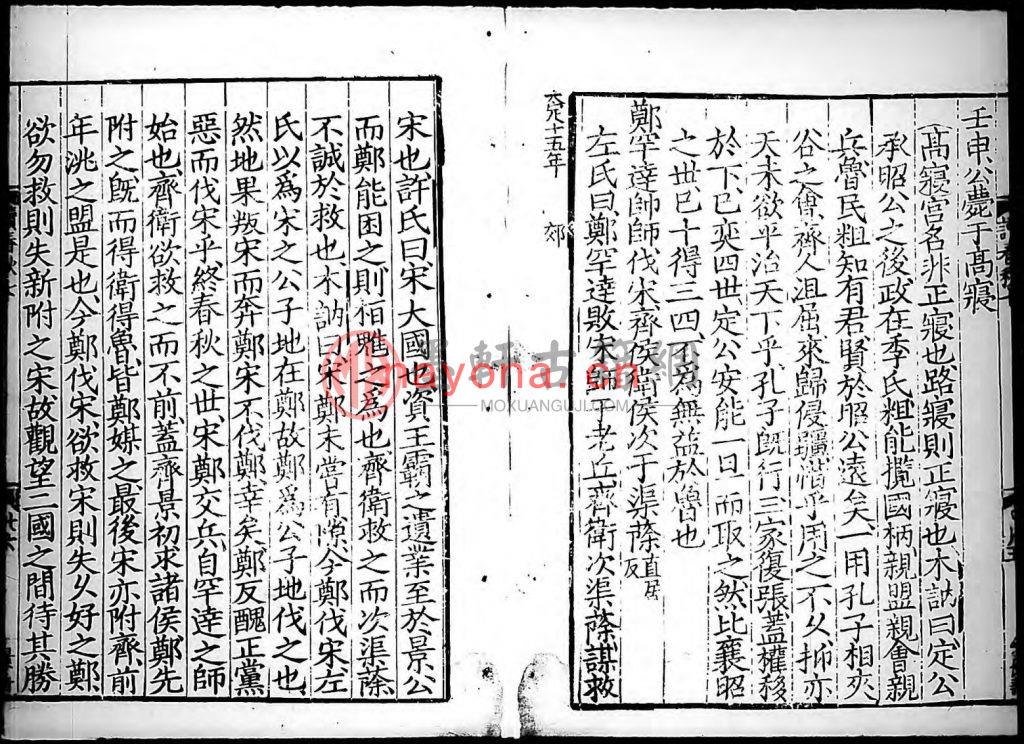 壬申公薨于髙寢
髙寢宫名非正寢也路寢則正寢也木訥曰定公
承昭公之後政在季氏粗能攬國柄親盟親會親
兵魯民粗知有君賢於昭公遠矣一用孔子相夾
谷之會齊人沮屈來歸侵疆惜乎用之不久抑亦
天未欲平治天下乎孔子旣行三家復張蓋權移
於下已奕四世定公安能一旦而取之然比襄昭
之世已十得三四不為無益於魯也
鄭罕達帥師伐宋齊侯衛侯次于渠蒢直居反
左氏曰鄭罕達敗宋師于老丘齊衛次渠蒢謀救
大定十五年 郊
宋也許氏曰宋大國也資王霸之遺業至於景公
而鄭能困之則桓魋之為也齊衛救之而次渠蒢
不誠於救也木訥曰宋鄭未嘗有隙今鄭伐宋左
氏以爲宋之公子地在鄭故鄭爲公子地伐之也
然地果叛宋而奔鄭宋不伐鄭幸矣鄭反醜正黨
惡而伐宋乎終春秋之世宋鄭交兵自罕達之師
始也齊衛欲救之而不前蓋齊景初求諸侯鄭先
附之旣而得衛得魯皆鄭媒之最後宋亦附齊前
年洮之盟是也今鄭伐宋欲救宋則失久好之鄭
欲勿救則失新附之宋故觀望二國之間待其勝
墨軒古籍網
nayona.cn
MOXUANGUJI.COM